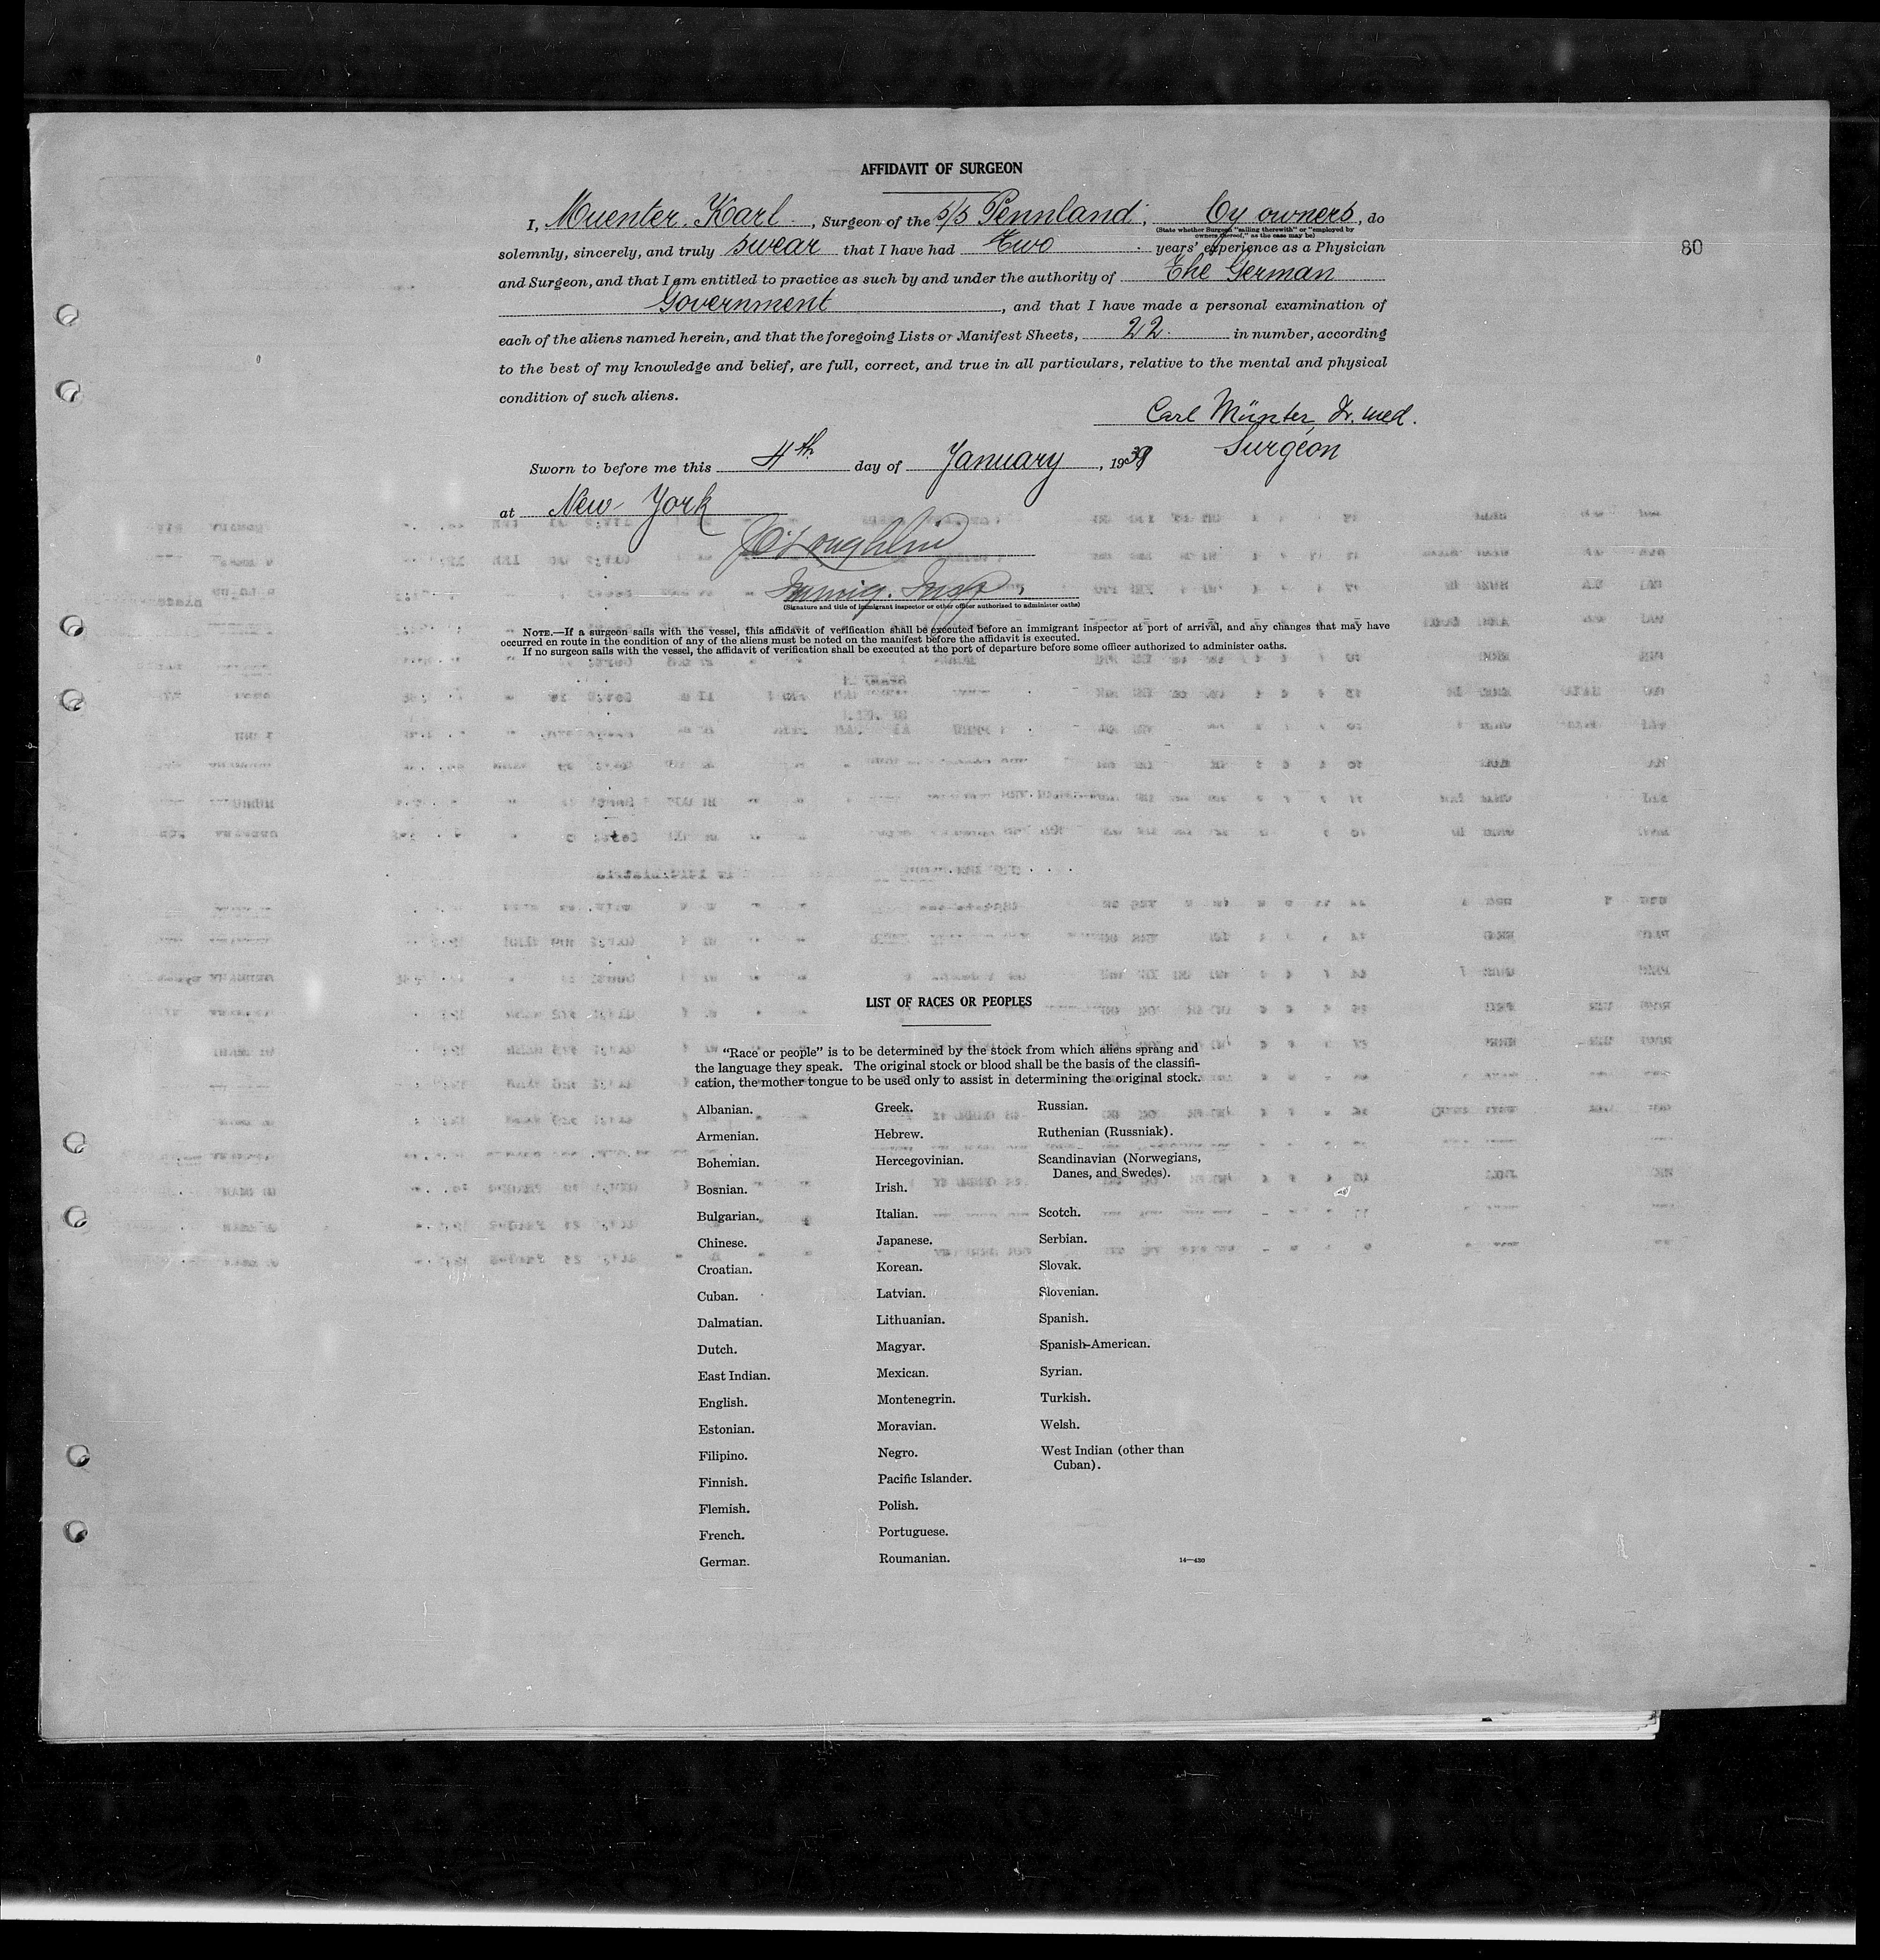 AFFIDAVIT OF SURGEON
I, Muenter. Karl, Surgeon of the S/S Pennland, by owners, do
(State whether Surgeon "sailing therewith" or "employed by
owners thereof," as the case may be)
80
solemnly, sincerely, and truly swear that I have had Two years' experience as a Physician
and Surgeon, and that I am entitled to practice as such by and under the authority of The German
Government, and that I have made a personal examination of
each of the aliens named herein, and that the foregoing Lists or Manifest Sheets, 22. in number, according
to the best of my knowledge and belief, are full, correct, and true in all particulars, relative to the mental and physical
condition of such aliens.
Carl Münter, Dr. med.
Surgeon
Sworn to before me this 4th day of January, 19
at New York
J O'Loughlin
Immig. Insp.
(Signature and title of immigrant inspector or other officer authorized to administer oaths)
NOTE.—If a surgeon sails with the vessel, this affidavit of verification shall be executed before an immigrant inspector at port of arrival, and any changes that may have
occurred en route in the condition of any of the aliens must be noted on the manifest before the affidavit is executed.
If no surgeon sails with the vessel, the affidavit of verification shall be executed at the port of departure before some officer authorized to administer oaths.
LIST OF RACES OR PEOPLES
"Race or people" is to be determined by the stock from which aliens sprang and
the language they speak. The original stock or blood shall be the basis of the classifi-
cation, the mother tongue to be used only to assist in determining the original stock.
Albanian.
Armenian.
Bohemian.
Bosnian.
Bulgarian.
Chinese.
Croatian.
Cuban.
Dalmatian.
Dutch.
East Indian.
English.
Estonian.
Filipino.
Finnish.
Flemish.
French.
German.
Greek.
Hebrew.
Hercegovinian.
Irish.
Italian.
Japanese.
Korean.
Latvian.
Lithuanian.
Magyar.
Mexican.
Montenegrin.
Moravian.
Negro.
Pacific Islander.
Polish.
Portuguese.
Roumanian.
Russian.
Ruthenian (Russniak).
Scandinavian (Norwegians,
Danes, and Swedes).
Scotch.
Serbian.
Slovak.
Slovenian.
Spanish.
Spanish-American.
Syrian.
Turkish.
Welsh.
West Indian (other than
Cuban).
14—430